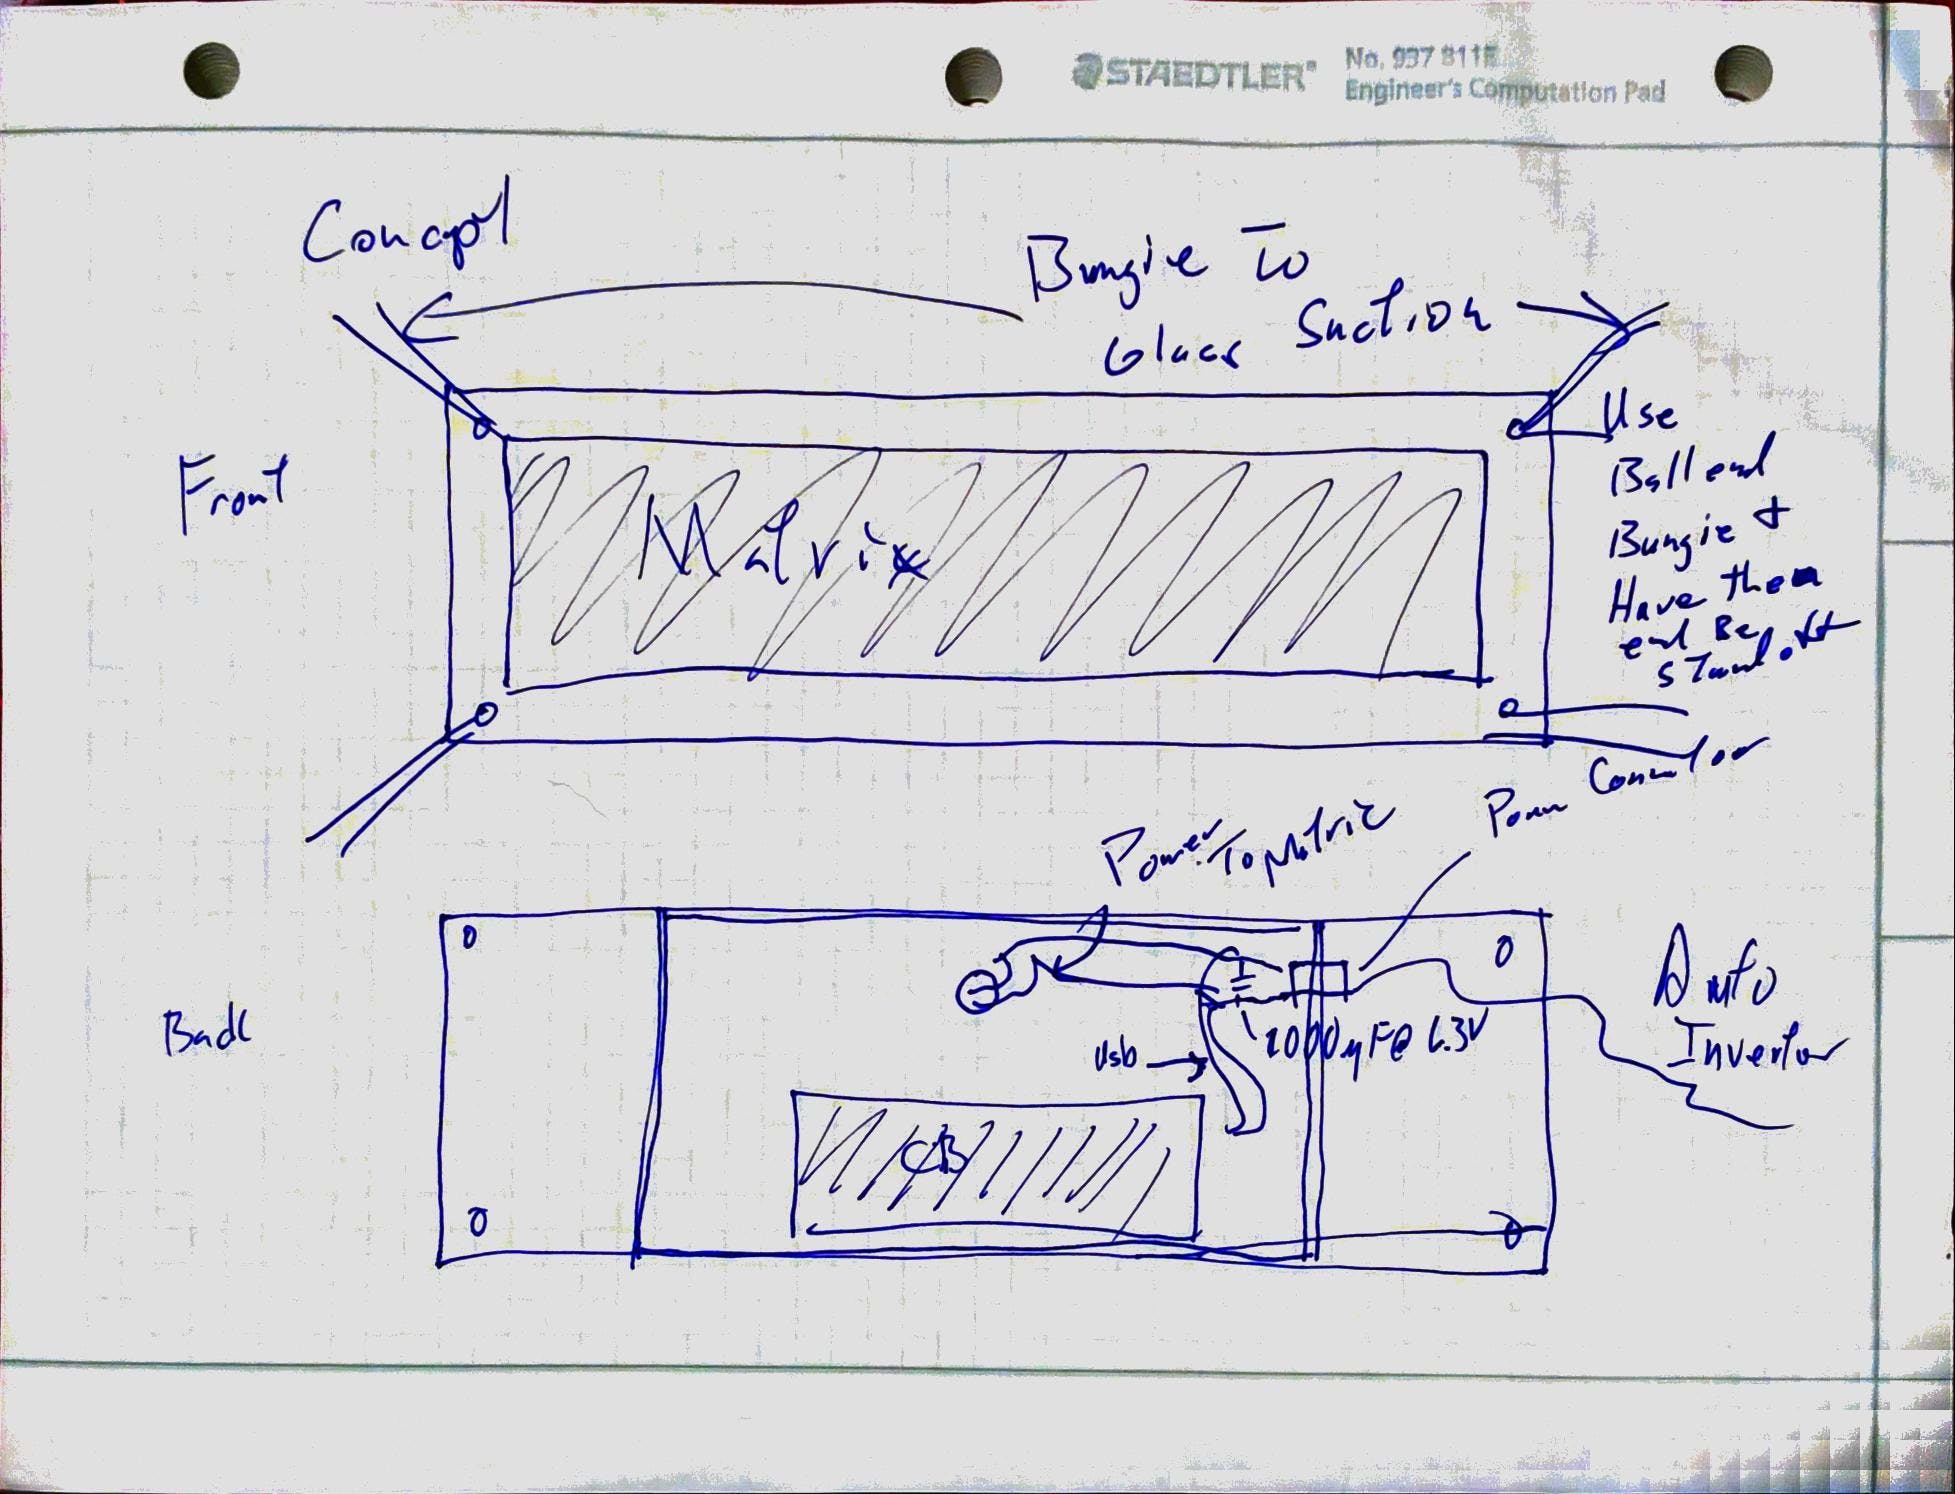 STAEDTLER®
No. 937 811E
Engineer's Computation Pad
Concept
Bungie To
Glass Suction
Front
Matrix
Use
Ball end
Bungie +
Have them
end Be
standoff
Power To Matric
Power Connector
Back
Usb
1000µF@ 6.3V
CB
Auto
Invertor